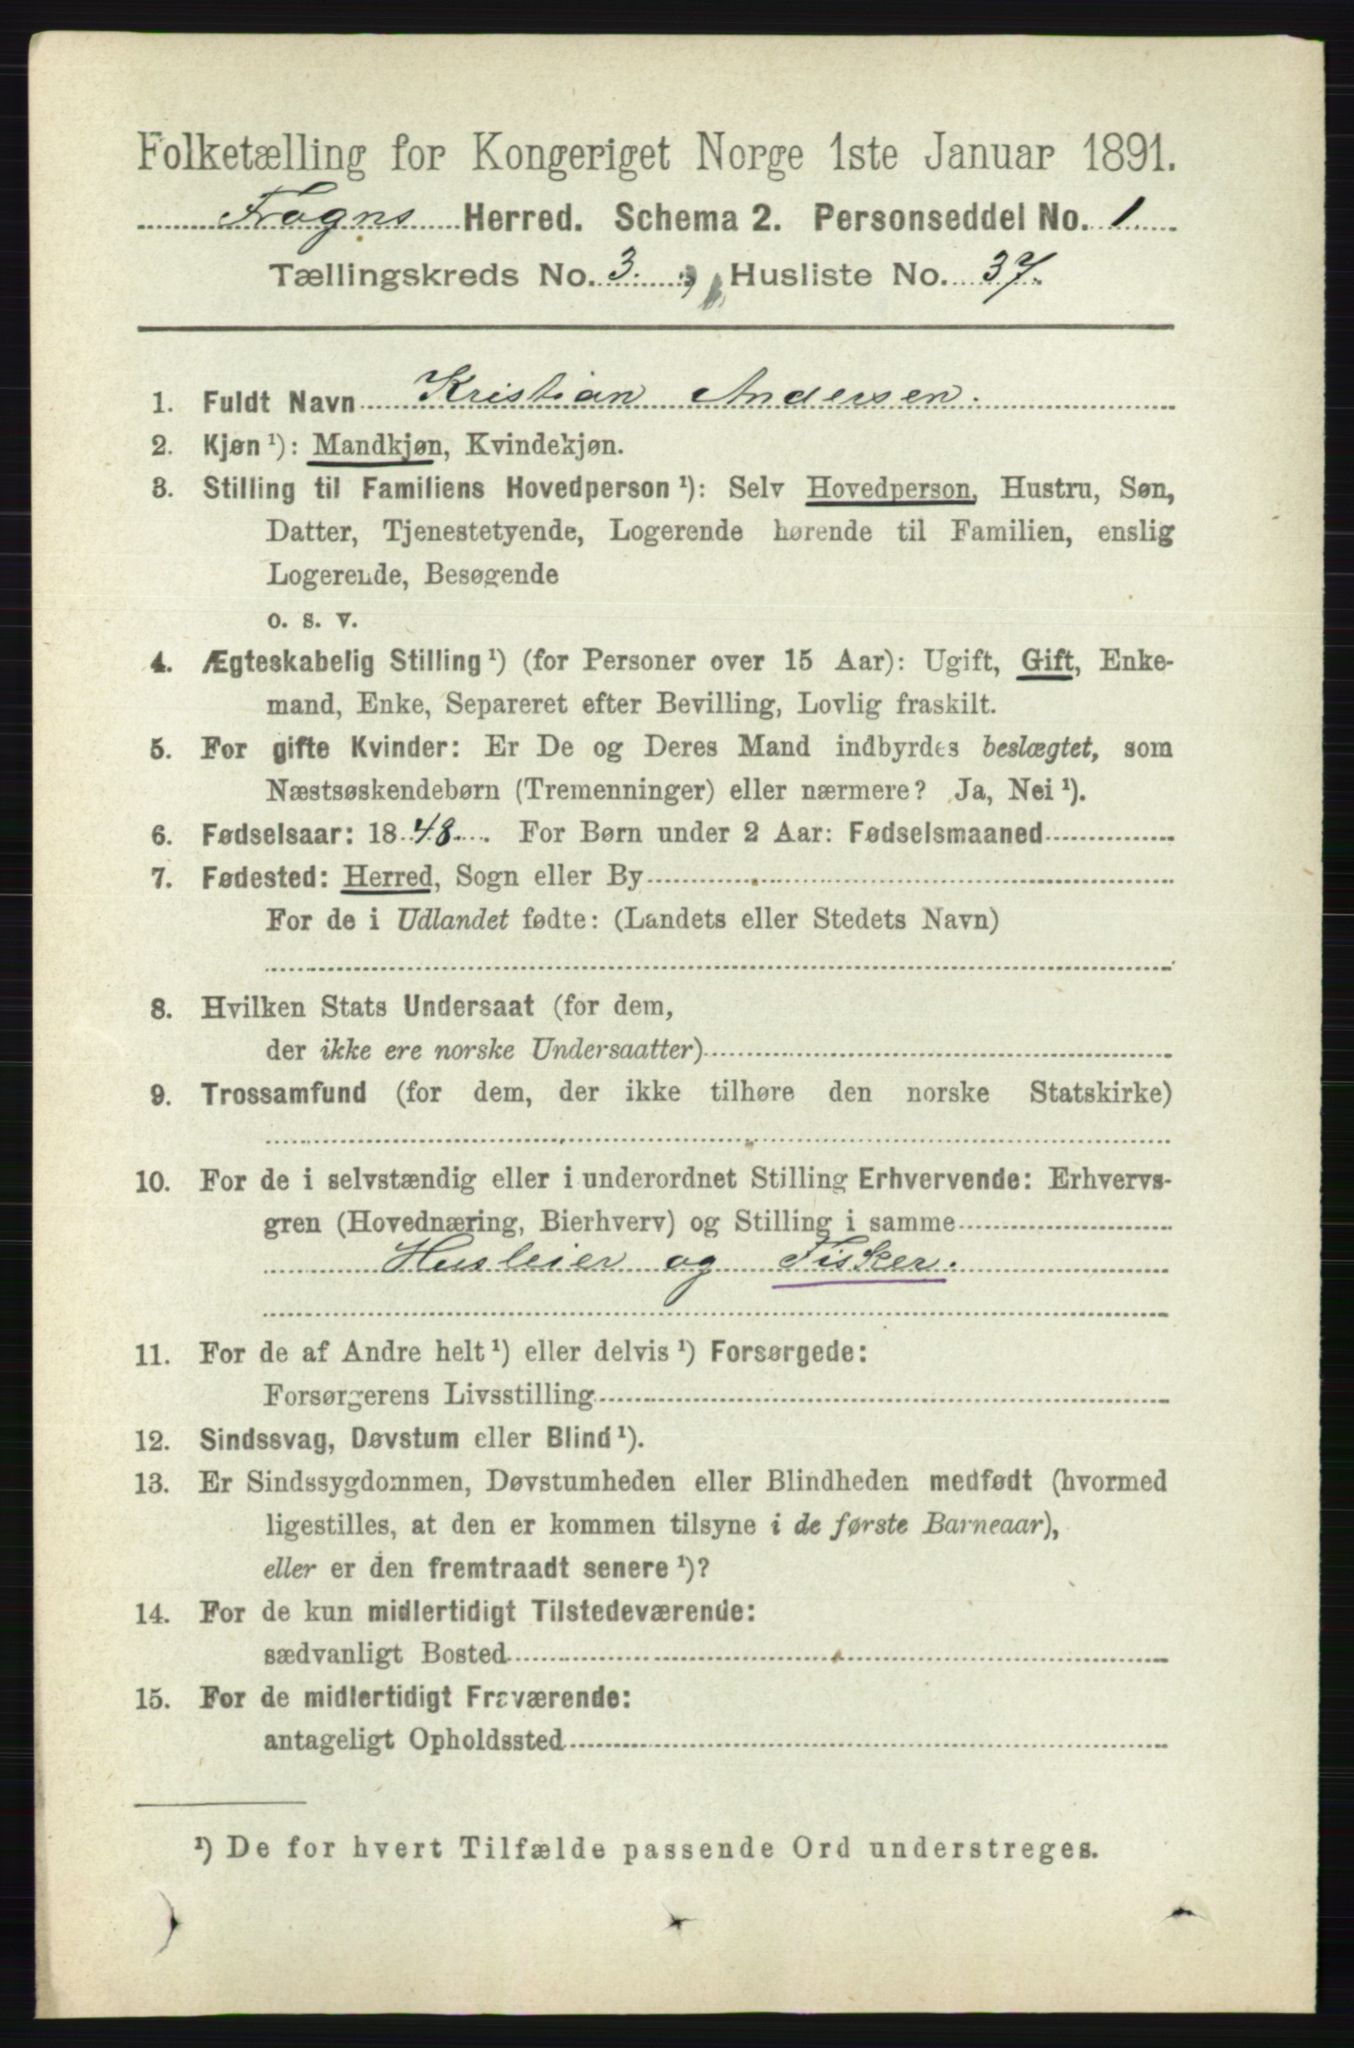 Folketælling for Kongeriget Norge 1ste Januar 1891.
Frogns Herred. Schema 2. Personseddel No. 1
Tællingskreds No. 3. , Husliste No. 37.
1. Fuldt Navn Kristian Andersen.
2. Kjøn ¹): Mandkjøn, Kvindekjøn.
3. Stilling til Familiens Hovedperson ¹): Selv Hovedperson, Hustru, Søn,
Datter, Tjenestetyende, Logerende hørende til Familien, enslig
Logerende, Besøgende
o. s. v.
4. Ægteskabelig Stilling ¹) (for Personer over 15 Aar): Ugift, Gift, Enke-
mand, Enke, Separeret efter Bevilling, Lovlig fraskilt.
5. For gifte Kvinder: Er De og Deres Mand indbyrdes beslægtet, som
Næstsøskendebørn (Tremenninger) eller nærmere? Ja, Nei ¹).
6. Fødselsaar: 1848. For Børn under 2 Aar: Fødselsmaaned
7. Fødested: Herred, Sogn eller By
For de i Udlandet fødte: (Landets eller Stedets Navn)
8. Hvilken Stats Undersaat (for dem,
der ikke ere norske Undersaatter)
9. Trossamfund (for dem, der ikke tilhøre den norske Statskirke)
10. For de i selvstændig eller i underordnet Stilling Erhvervende: Erhvervs-
gren (Hovednæring, Bierhverv) og Stilling i samme
Husleier og Fisker.
11. For de af Andre helt ¹) eller delvis ¹) Forsørgede:
Forsørgerens Livsstilling
12. Sindssvag, Døvstum eller Blind ¹).
13. Er Sindssygdommen, Døvstumheden eller Blindheden medfødt (hvormed
ligestilles, at den er kommen tilsyne i de første Barneaar),
eller er den fremtraadt senere ¹)?
14. For de kun midlertidigt Tilstedeværende:
sædvanligt Bosted
15. For de midlertidigt Fraværende:
antageligt Opholdssted
¹) De for hvert Tilfælde passende Ord understreges.